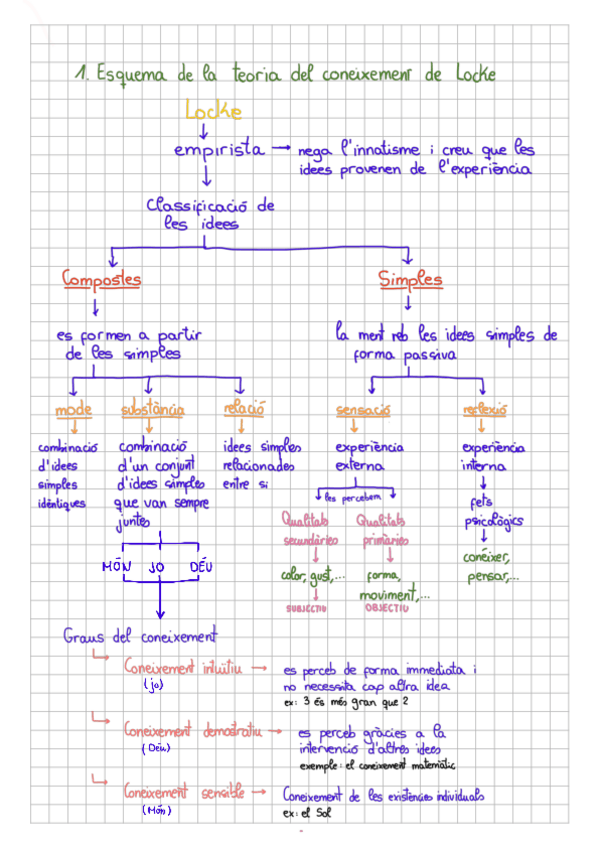 1. Esquema de la teoria del coneixement de Locke
Locke
empirista → nega l'innatisme i creu que les
idees provenen de l'experiència
Classificació de
les idees
Compostes
Simples
es formen a partir
de les simples
la ment reb les idees simples de
forma passiva
mode
substància
relació
sensació
reflexió
combinació
d'idees
simples
idèntiques
combinació
d'un conjunt
d'idees simples
que van sempre
juntes
idees simples
relacionades
entre si
experiència
externa
experiència
interna
les percebem
fets
psicològics
Qualitats
secundàries
Qualitats
primàries
conèixer,
pensar,...
color, gust,...
forma,
moviment,...
SUBJECTIU
OBJECTIU
MÓN JO DÉU
Graus del coneixement
Coneixement intuïtiu →
(jo)
es perceb de forma immediata i
no necessita cap altra idea
ex: 3 és més gran que 2
Coneixement demostratiu →
(Déu)
es perceb gràcies a la
intervenció d'altres idees
exemple: el coneixement matemàtic
Coneixement sensible →
(Món)
Coneixement de les existències individuals
ex: el Sol